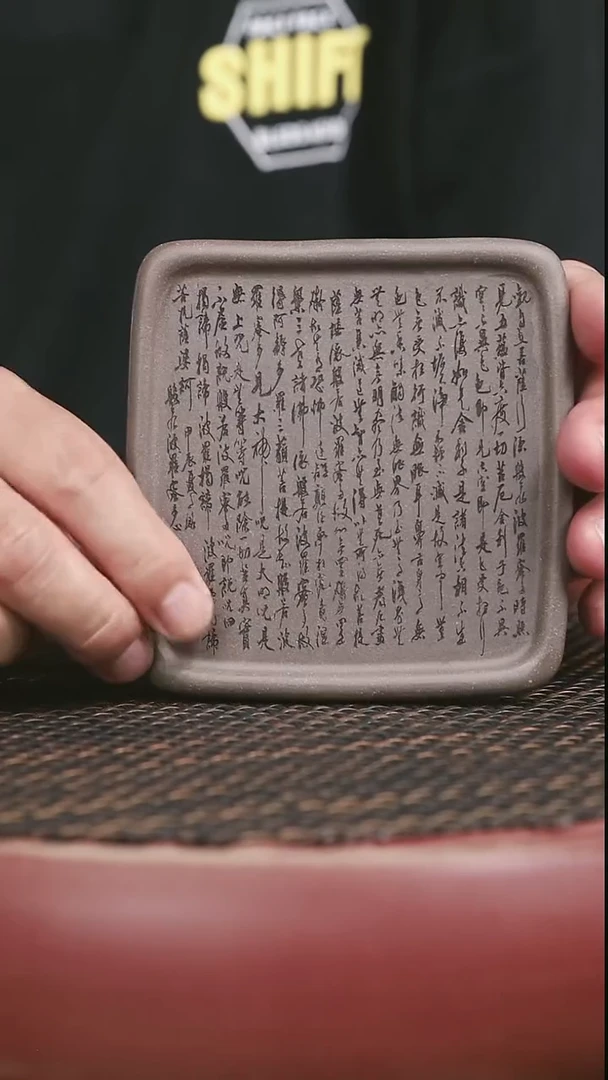 SHIFT
觀自在菩薩行深般若波羅蜜多時照
見五蘊皆空度一切苦厄舍利子色不異
空空不異色色即是空空即是色受想行
識亦復如是舍利子是諸法空相不生
不滅不垢不淨不增不減是故空中無
色無受想行識無眼耳鼻舌身意無
色聲香味觸法無眼界乃至無意識界
無無明亦無無明盡乃至無老死亦無老死盡
無苦集滅道無智亦無得以無所得故菩提
薩埵依般若波羅蜜多故心無罣礙無罣
礙故無有恐怖遠離顛倒夢想究竟涅
槃三世諸佛依般若波羅蜜多故
得阿耨多羅三藐三菩提故知般若波
羅蜜多是大神咒是大明咒是
無上咒是無等等咒能除一切苦真實
不虛故說般若波羅蜜多咒即說咒曰
揭諦揭諦波羅揭諦波羅諦
菩提薩婆訶甲辰夏
般若波羅蜜多心